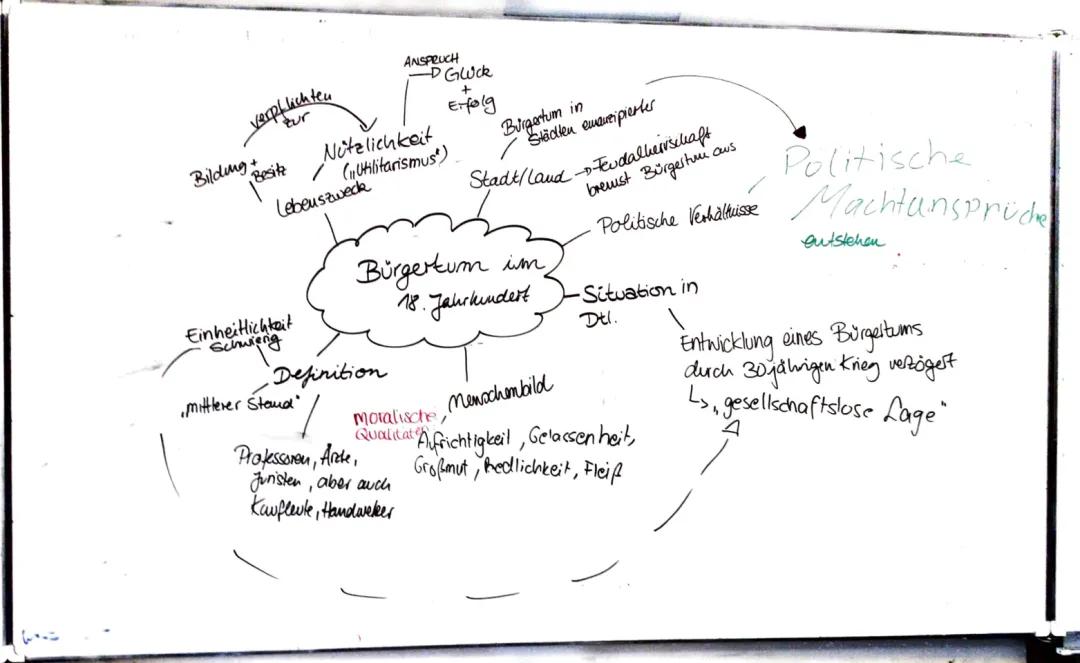 ANSPRUCH
Glück
+
Erfolg
verpflichten
zur
Nützlichkeit
("Utilitarismus")
Bildung +
Besitz
Lebenszweck
Bürgertum in
Städten emanzipierter
Stadt/Land → Feudalherrschaft
bremst Bürgertum aus
Politische
Machtansprüche
entstehen
Politische Verhältnisse
Bürgertum im
18. Jahrhundert
Situation in
Dtl.
Entwicklung eines Bürgertums
durch 30jährigen Krieg verzögert
↳ „gesellschaftslose Lage"
Einheitlichkeit
schwierig
Definition
„mittlerer Stand"
Professoren, Ärzte,
Juristen, aber auch
Kaufleute, Handwerker
Menschenbild
moralische
Qualitäten
Aufrichtigkeit, Gelassenheit,
Großmut, Redlichkeit, Fleiß